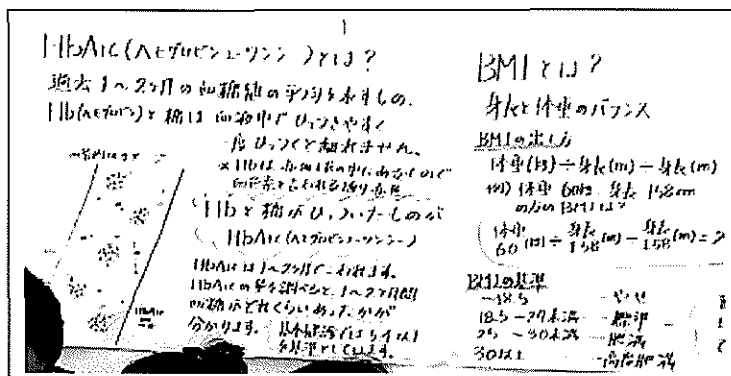 HbA1c(ヘモグロビンエーワンシー)とは?
過去1〜2ヶ月の血糖値の平均を表すもの。
Hb(ヘモグロビン)と糖は血液中でひっつきやすく
一度ひっつくと離れません。
※Hbは赤血球の中にあるもので
Hbと糖がひっついたものが
HbA1c(ヘモグロビンエーワンシー)
HbA1cは1〜2ヶ月でこわれます。
HbA1cの量を調べると、1〜2ヶ月間
血糖がどれくらいあったかが
分かります。
を基準としています。
HbA1c
BMIとは?
身長と体重のバランス
BMIの出し方
体重(kg)÷身長(m)÷身長(m)
例)体重60kg 身長158cm
の方のBMIは?
体重 身長 身長
60(kg)÷1.58(m)÷1.58(m)=2
BMIの基準
〜18.5 やせ
18.5〜 未満 標準
25〜30未満 肥満
30以上 高度肥満